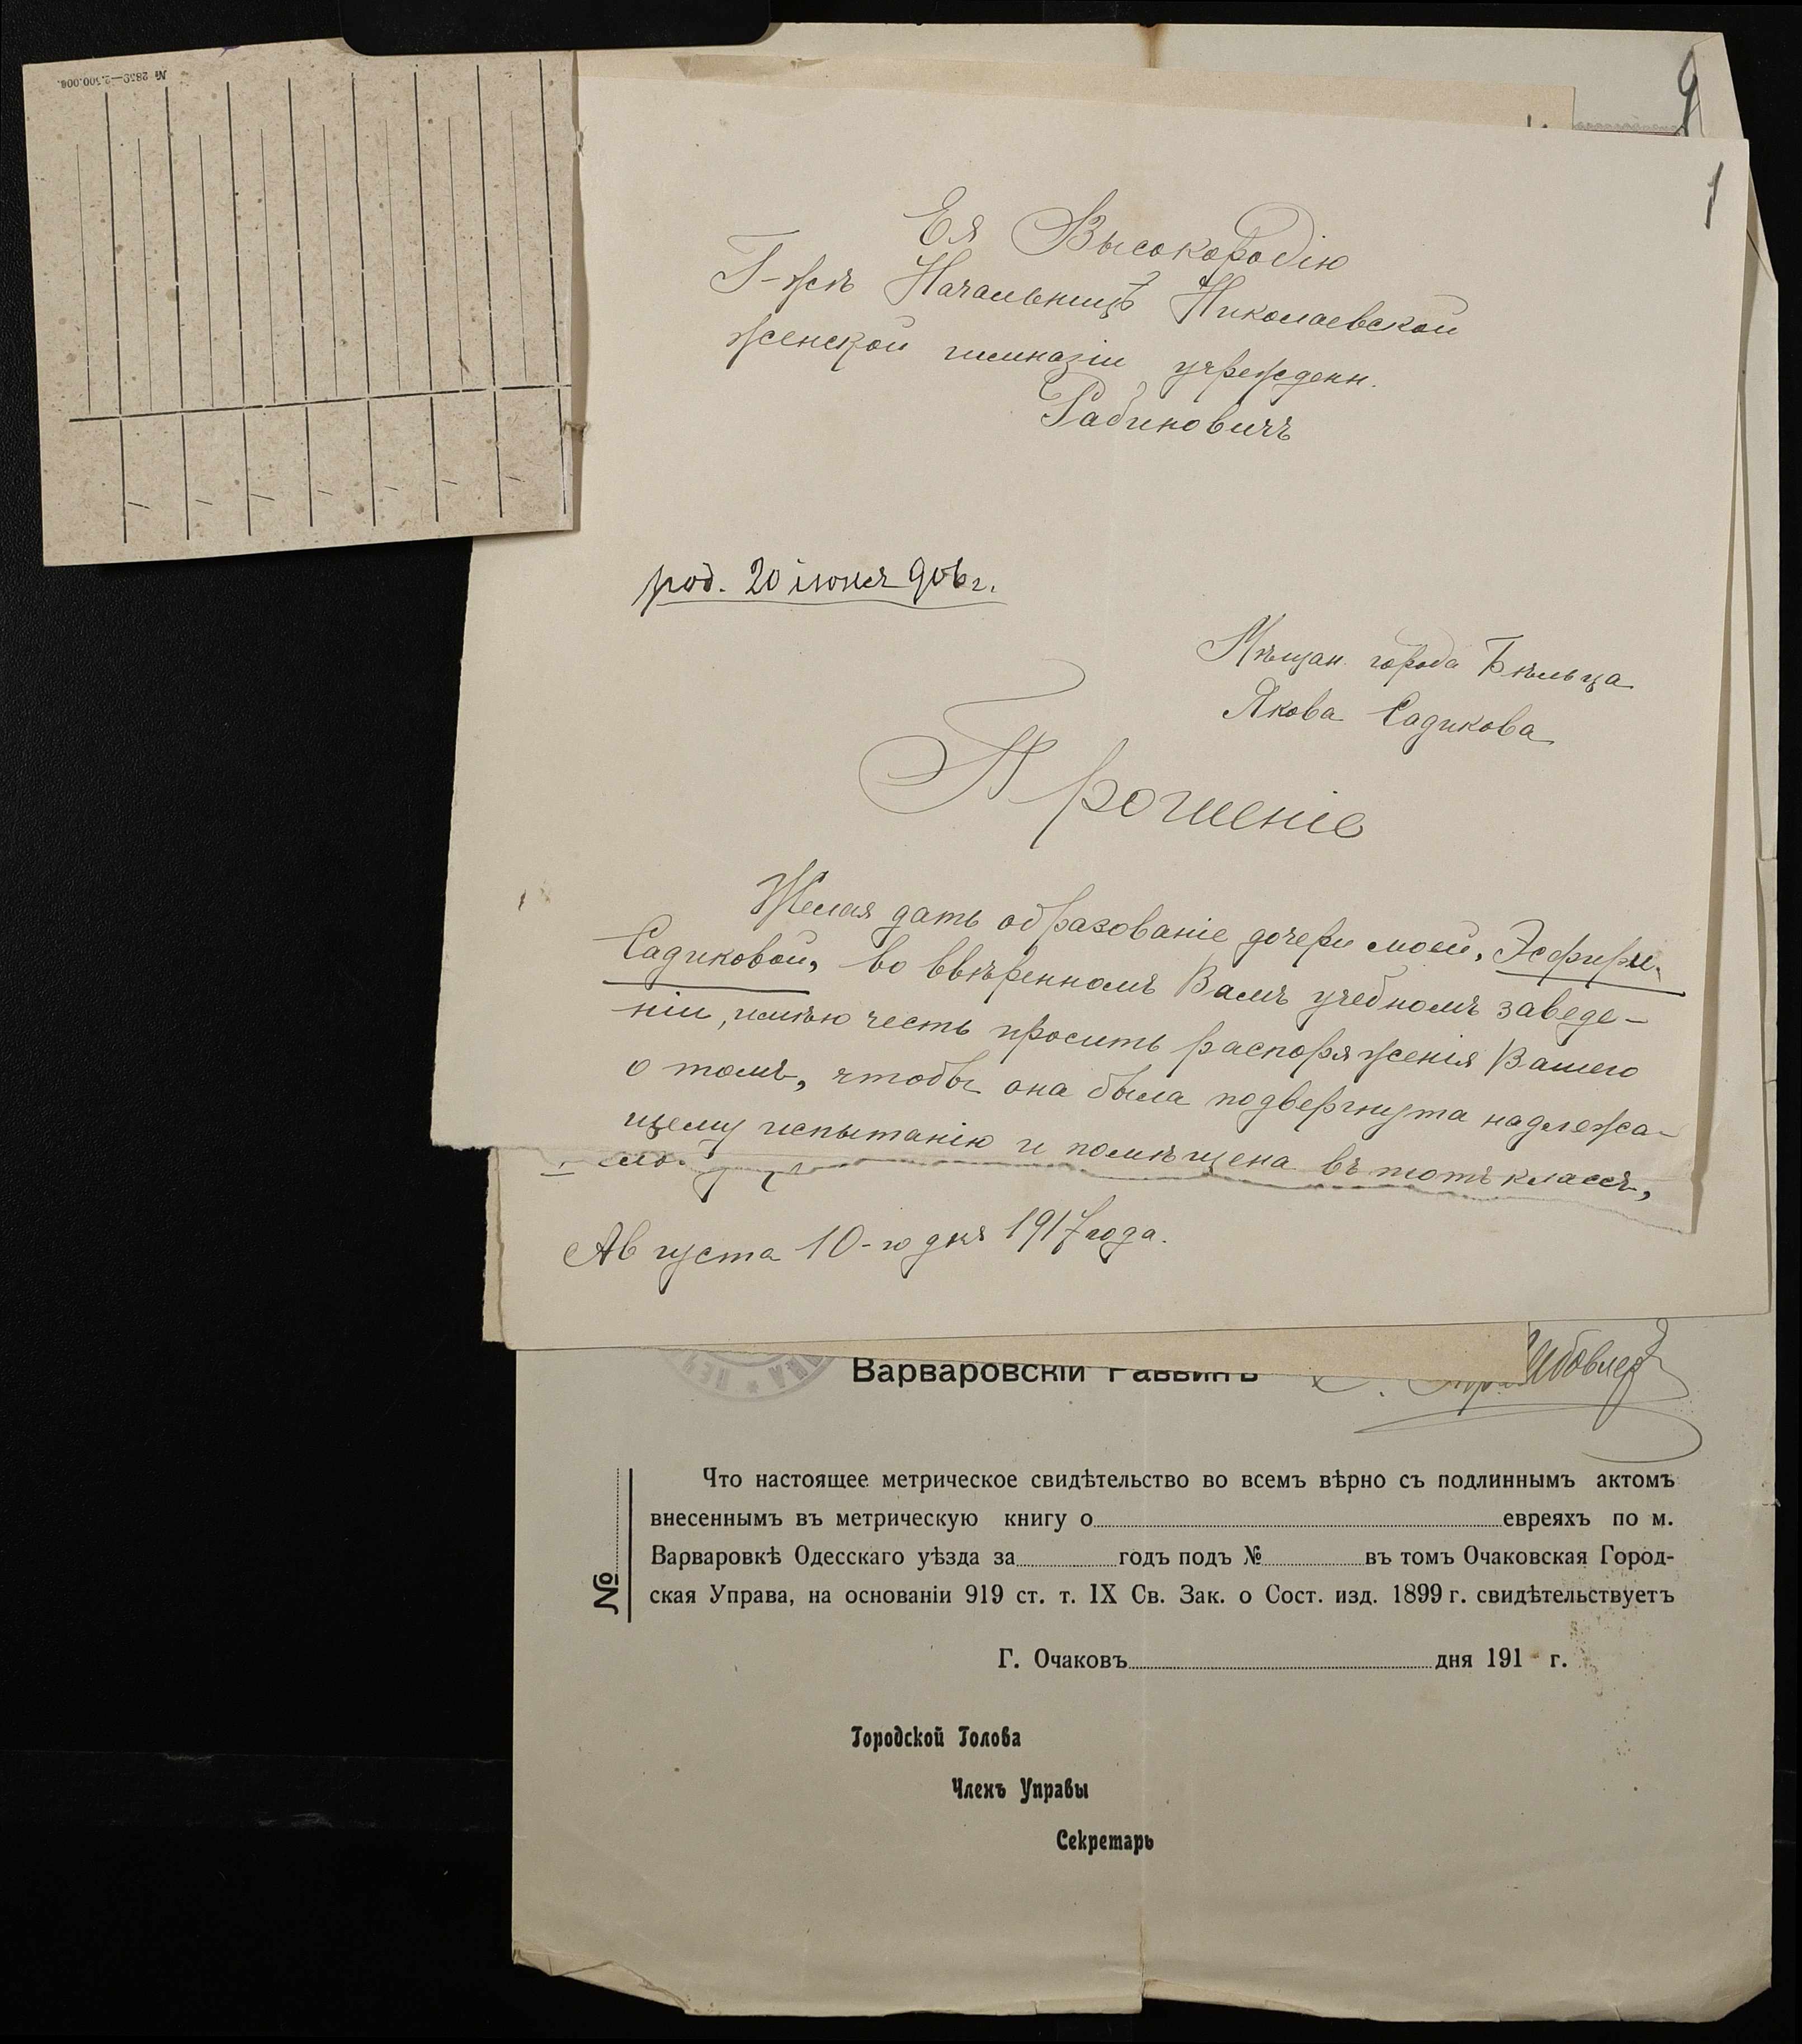 № 2859—2.500.000.
9
1
Ея Высокородію
Г-жѣ Начальницѣ Николаевской
женской гимназіи учрежденн.
Рабиновичъ
род. 20 іюня 906 г.
Мѣщан. города Бѣльца
Якова Садикова
Прошеніе
Желая дать образованіе дочери моей, Эсфири
Садиковой, во ввѣренномъ Вамъ учебномъ заведе-
ніи, имѣю честь просить распоряженія Вашего
о томъ, чтобы она была подвергнута надлежа-
щему испытанію и помѣщена въ тотъ классъ,
Августа 10-го дня 1917 года.
Варваровскій Раввинъ
Что настоящее метрическое свидѣтельство во всемъ вѣрно съ подлиннымъ актомъ
внесеннымъ въ метрическую книгу о евреяхъ по м.
Варваровкѣ Одесскаго уѣзда за годъ подъ № въ томъ Очаковская Город-
ская Управа, на основаніи 919 ст. т. IX Св. Зак. о Сост. изд. 1899 г. свидѣтельствуетъ
№
Г. Очаковъ дня 191 г.
Городской Голова
Членъ Управы
Секретарь